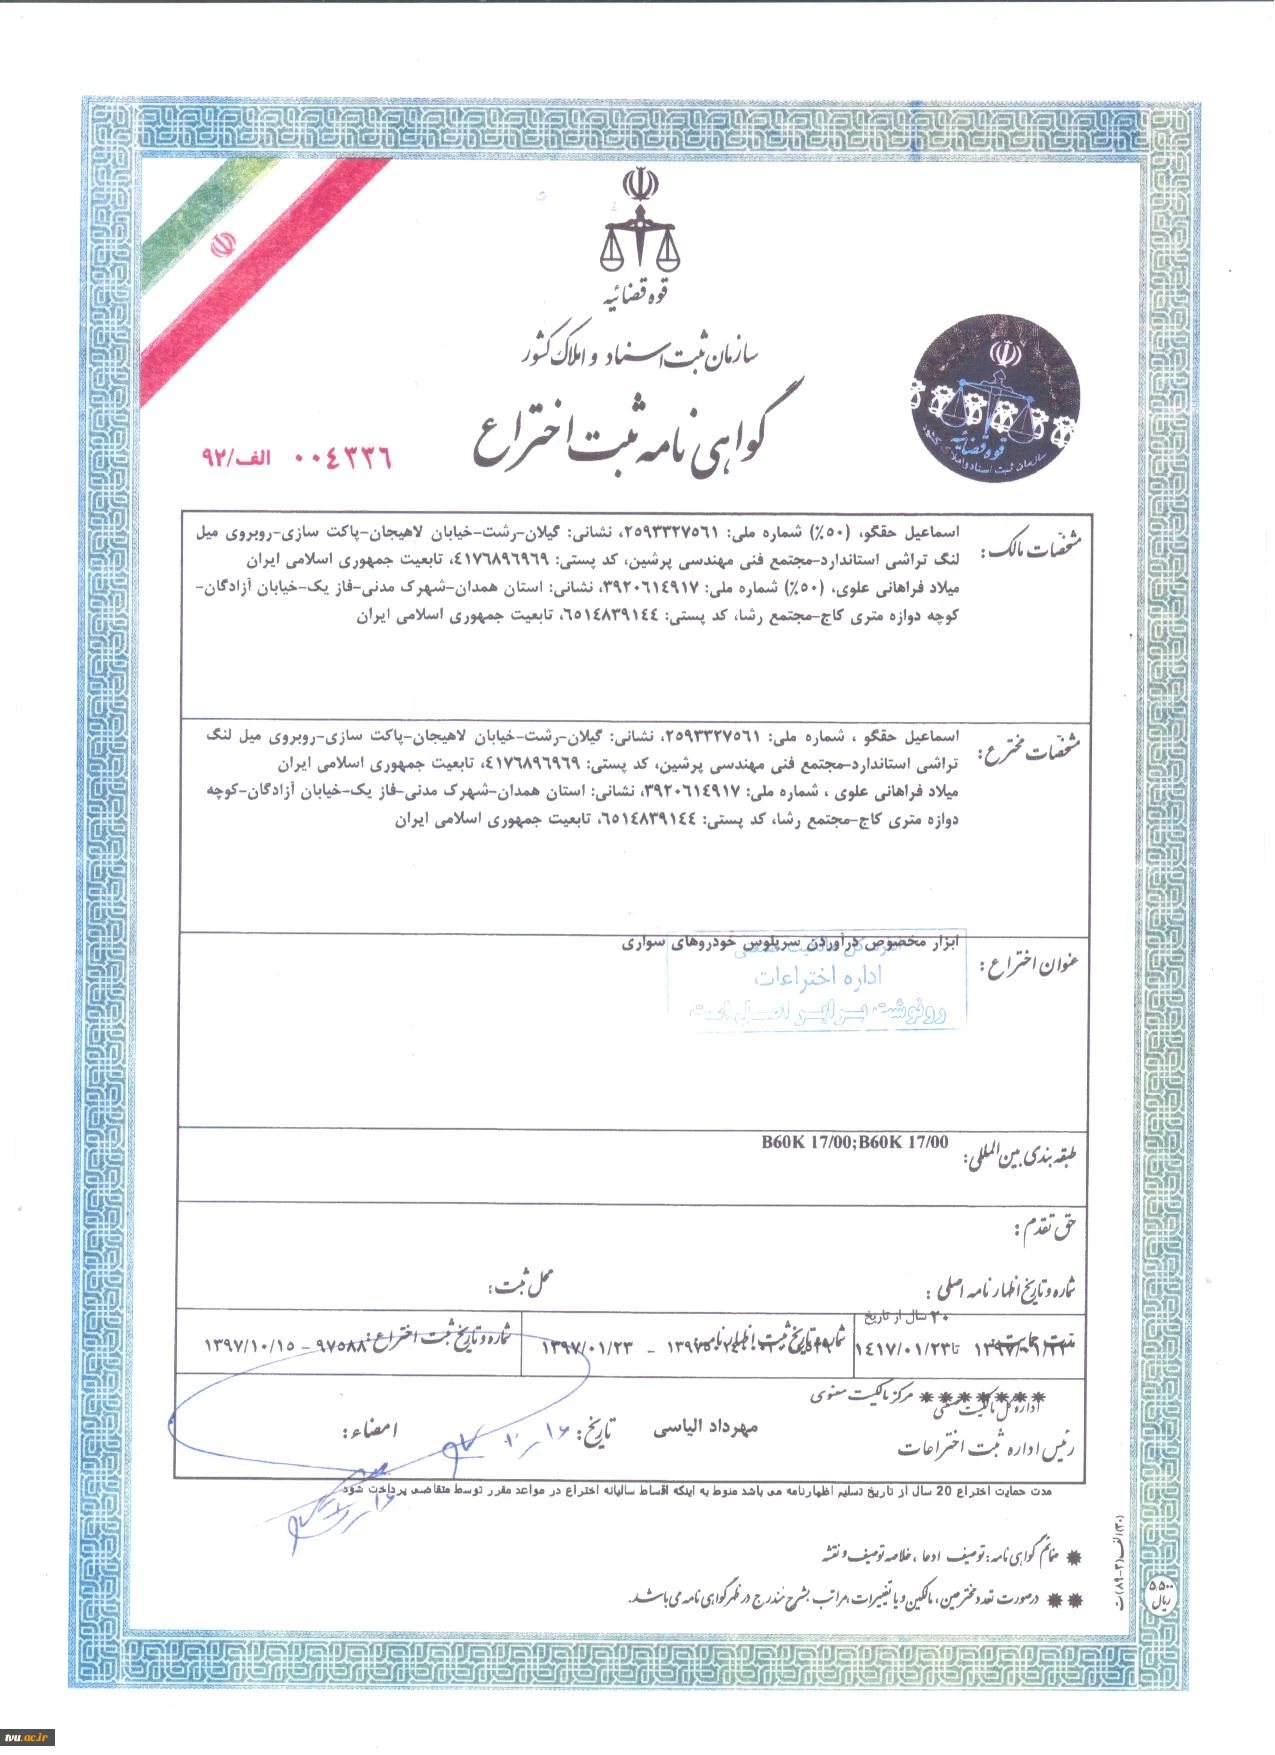 قوه قضائیه
سازمان ثبت اسناد و املاک کشور
گواهی نامه ثبت اختراع
الف/۹۲ ۰۰۴۳۳۶
قوه قضائیه
سازمان ثبت اسناد و املاک کشور
مشخصات مالک:
اسماعیل حقگو، (۵۰٪) شماره ملی: ۲۵۹۳۳۲۷۵۶۱، نشانی: گیلان-رشت-خیابان لاهیجان-پاکت سازی-روبروی میل
لنگ تراشی استاندارد-مجتمع فنی مهندسی پرشین، کد پستی: ۴۱۷۶۸۹۶۹۶۹، تابعیت جمهوری اسلامی ایران
میلاد فراهانی علوی، (۵۰٪) شماره ملی: ۳۹۲۰۶۱۴۹۱۷، نشانی: استان همدان-شهرک مدنی-فاز یک-خیابان آزادگان-
کوچه دوازه متری کاج-مجتمع رشا، کد پستی: ۶۵۱۴۸۳۹۱۴۴، تابعیت جمهوری اسلامی ایران
مشخصات مخترع:
اسماعیل حقگو ، شماره ملی: ۲۵۹۳۳۲۷۵۶۱، نشانی: گیلان-رشت-خیابان لاهیجان-پاکت سازی-روبروی میل لنگ
تراشی استاندارد-مجتمع فنی مهندسی پرشین، کد پستی: ۴۱۷۶۸۹۶۹۶۹، تابعیت جمهوری اسلامی ایران
میلاد فراهانی علوی ، شماره ملی: ۳۹۲۰۶۱۴۹۱۷، نشانی: استان همدان-شهرک مدنی-فاز یک-خیابان آزادگان-کوچه
دوازه متری کاج-مجتمع رشا، کد پستی: ۶۵۱۴۸۳۹۱۴۴، تابعیت جمهوری اسلامی ایران
عنوان اختراع :
ابزار مخصوص درآوردن سرپلوس خودروهای سواری
اداره اختراعات
رونوشت برابر اصل است
طبقه بندی بین المللی:
B60K 17/00;B60K 17/00
حق تقدم :
شماره و تاریخ اظهارنامه اصلی : محل ثبت:
۲۰ سال از تاریخ
مدت حمایت: ۱۳۹۷/۰۱/۲۳ تا ۱۴۱۷/۰۱/۲۳
شماره و تاریخ ثبت اظهارنامه: - ۱۳۹۷/۰۱/۲۳
شماره و تاریخ ثبت اختراع: ۹۷۵۸۸ - ۱۳۹۷/۱۰/۱۵
مرکز مالکیت معنوی
اداره کل مالکیت صنعتی
رئیس اداره ثبت اختراعات مهرداد الیاسی تاریخ: امضاء:
مدت حمایت اختراع 20 سال از تاریخ تسلیم اظهارنامه می باشد منوط به اینکه اقساط سالیانه اختراع در مواعد مقرر توسط متقاضی پرداخت شود
✸ ضمائم گواهی نامه: توصیف ادعا ، خلاصه توصیف و نقشه
✸✸ درصورت تعدد مخترعین، مالکین و یا تغییرات، مراتب بشرح مندرج در ظهر گواهی نامه می باشد.
۵۵۰۰
ریال
tvu.ac.ir